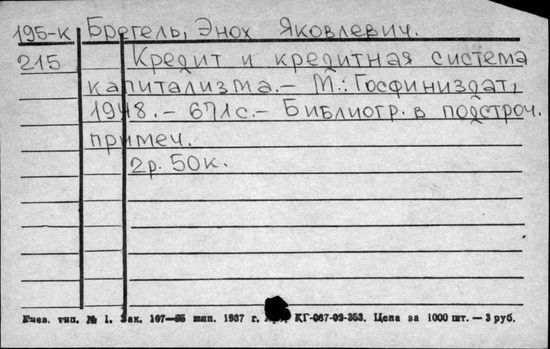 195-к Брегель, Энох Яковлевич.
215 Кредит и кредитная система
капитализма.- М.: Госфиниздат,
1948.- 671с.- Библиогр. в подстроч.
примеч.
2р. 50к.
Киев. тип. № 1. Зак. 107—95 шп. 1987 г. КГ-067-02-353. Цена за 1000 шт. — 3 руб.